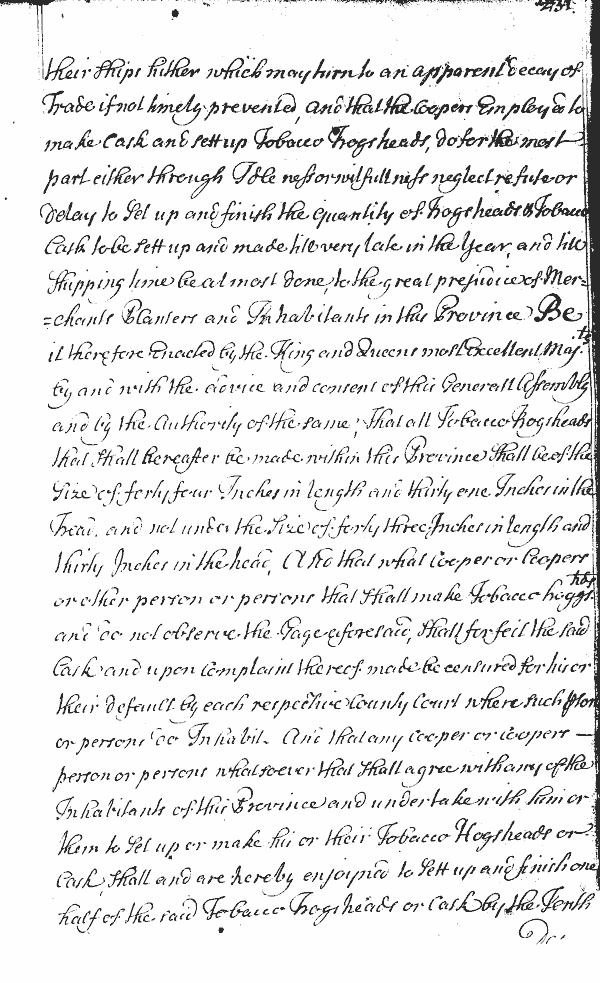 their Ships hither which may turn to an apparent decay of
Trade if not timely prevented, and that the Coopers Employed to
make Cask and sett up Tobacco Hogsheads, do for the most
part either through Idleness or wilfullness neglect refuse or
delay to Set up and finish the quantity of Hogsheads & Tobacco
Cask to be sett up and made till very late in the Year, and till
Shipping time be almost done, to the great prejudice of Mer-
=chants Planters and Inhabitants in this Province Be
it therefore Enacted by the King and Queens most Excellent Maj.ts
by and with the advice and consent of this Generall Assembly
and by the Authority of the same, That all Tobacco Hogsheads
that Shall hereafter be made within this Province Shall be of the
Size of forty four Inches in length and thirty one Inches in the
head, and not under the Size of forty three Inches in length and
thirty Inches in the head, Also that what Cooper or Coopers
or other person or persons that Shall make Tobacco hoggs.hds
and do not observe the Gage aforesaid, Shall forfeit the said
Cask and upon Complaint thereof made be censured for his or
their default by each respective County Court where such pson
or persons do Inhabit. And that any Cooper or Coopers —
person or persons whatsoever that Shall agree with any of the
Inhabitants of this Province and undertake with him or
them to Set up or make his or their Tobacco Hogsheads or
Cask, Shall and are hereby enjoyned to Sett up and finish one
half of the said Tobacco Hogsheads or Cask by the Tenth